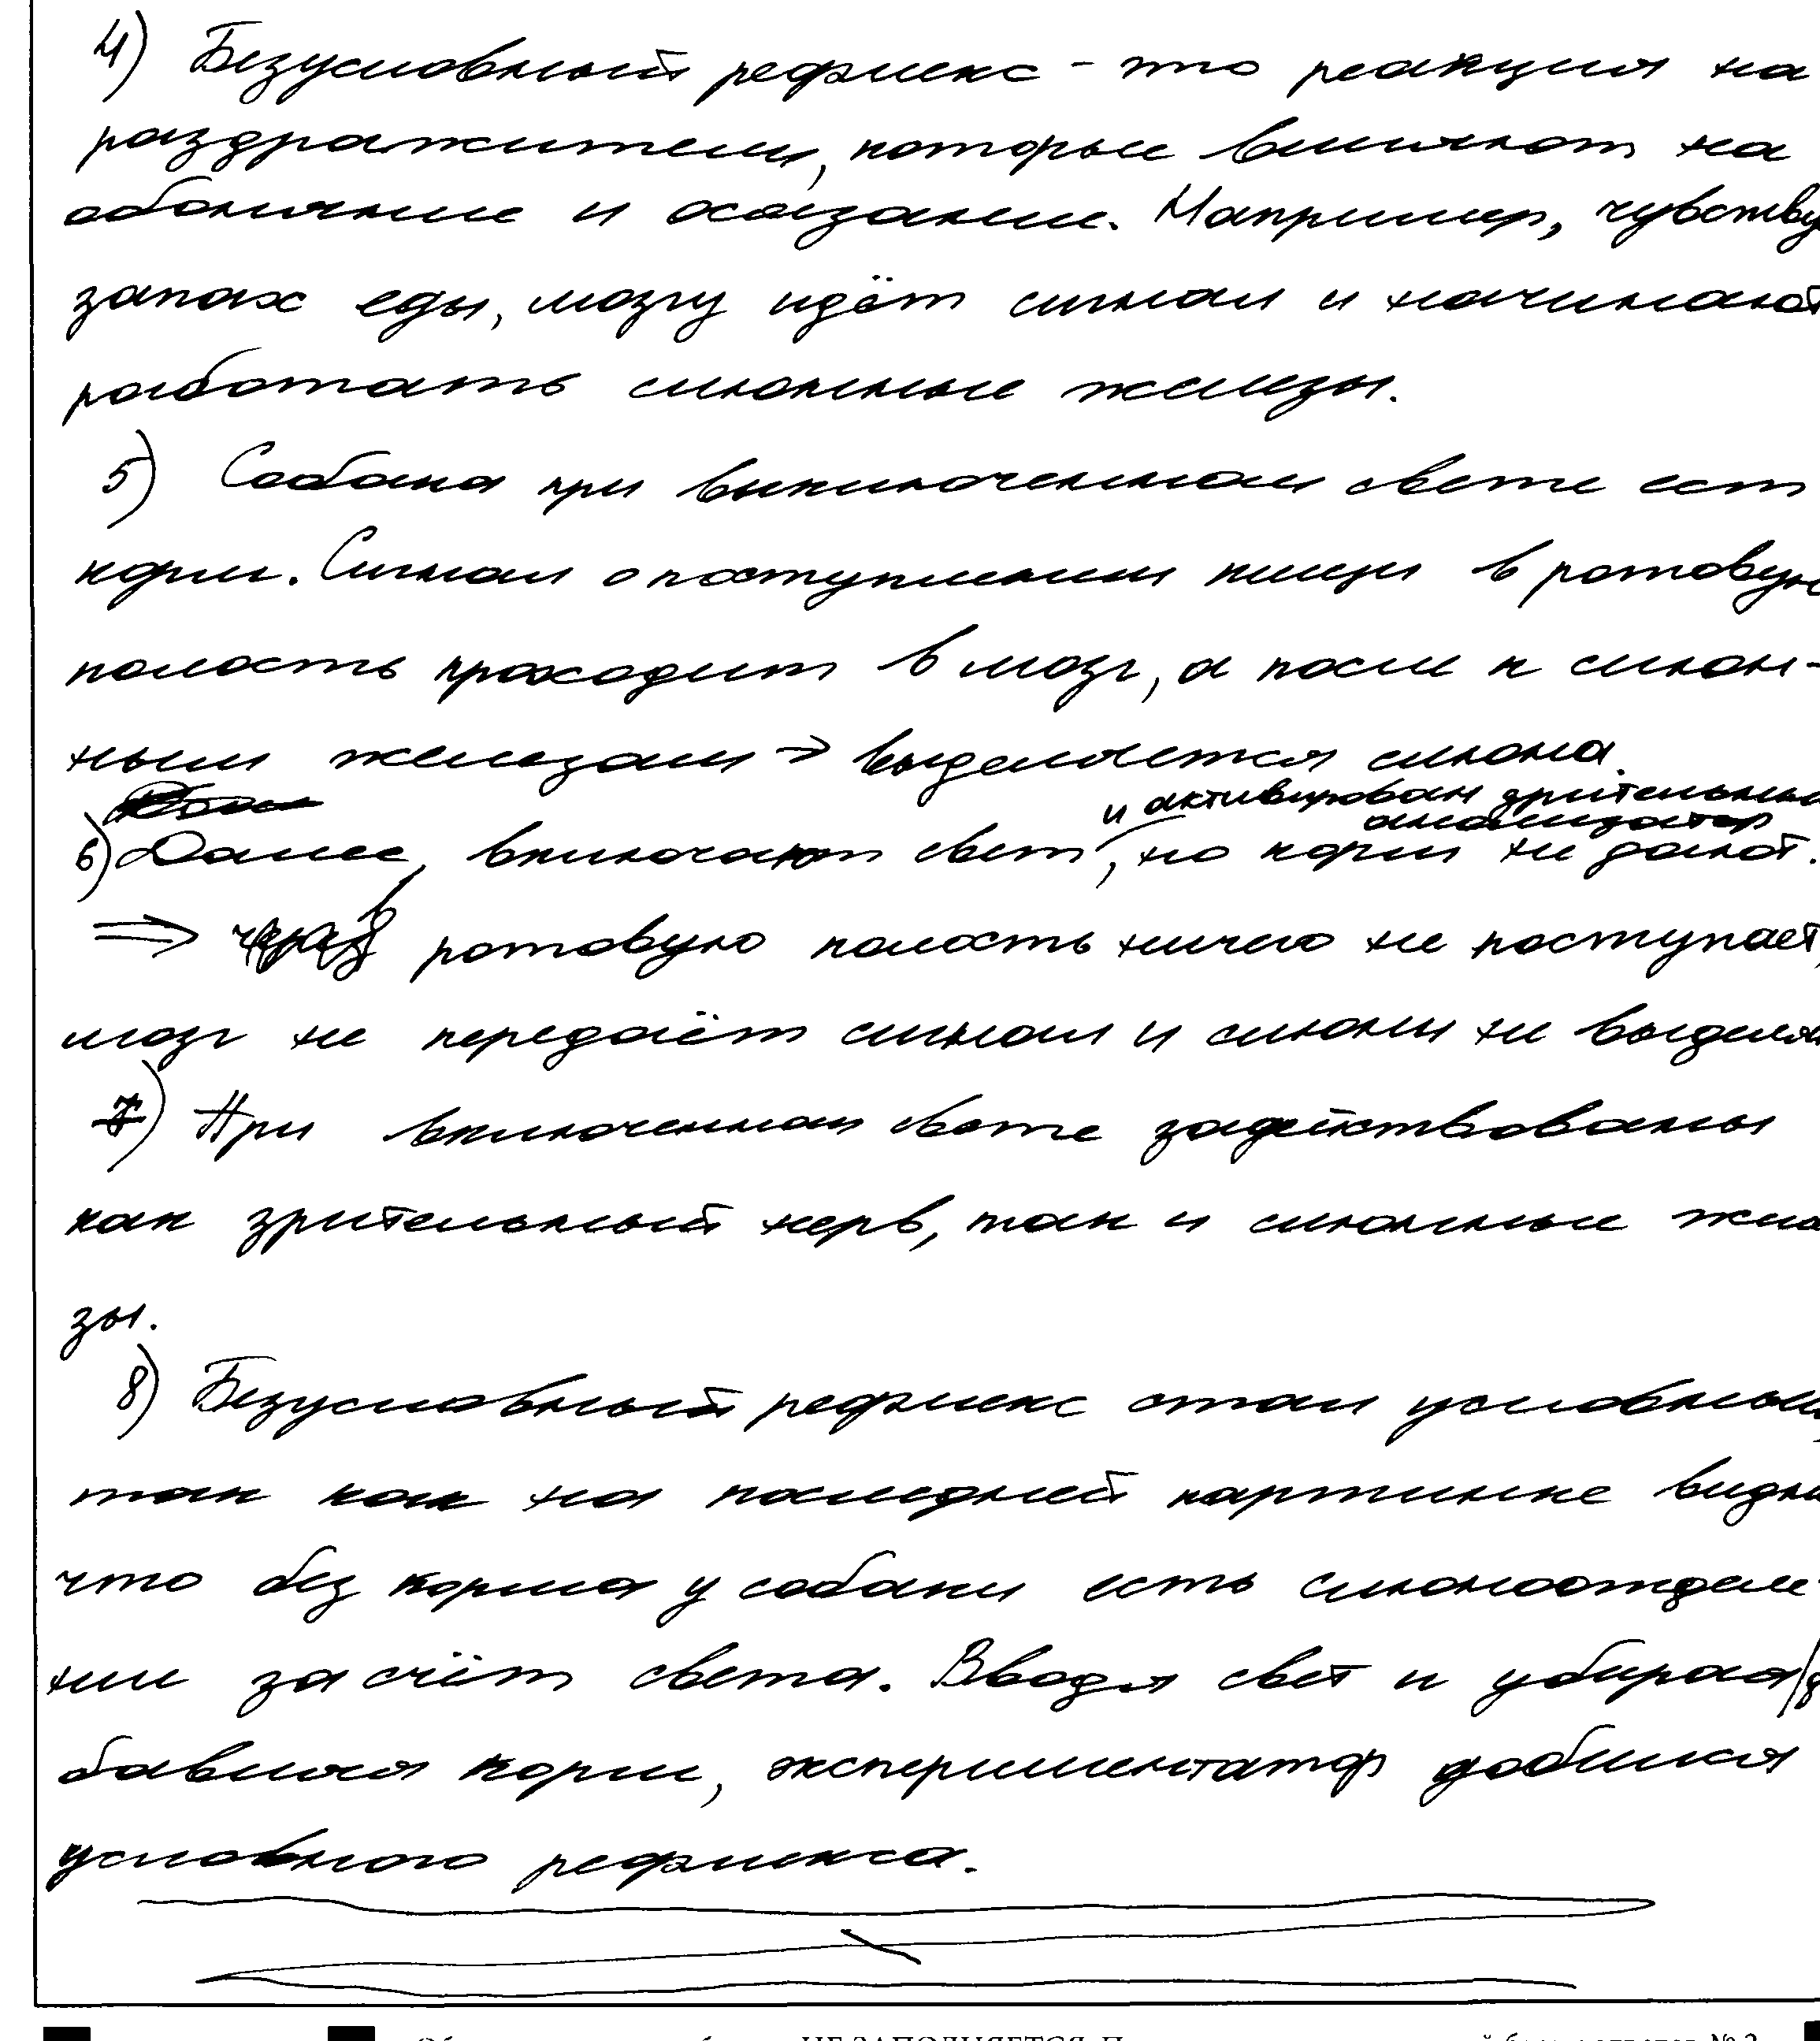 4) Безусловный рефлекс - это реакция на
раздражители, которые влияют на
обоняние и осязание. Например, чувству
запах еды, мозгу идёт сигнал и начинают
работать слюнные железы.
5) Собака при выключенном свете ест
корм. Сигнал о поступлении пищи в ротовую
полость проходит в мозг, а после к слюн-
ным железам → выделяется слюна.
и активирован зрительный
анализатор
6) Далее, включают свет, но корм не дают.
⇒ в ротовую полость ничего не поступает,
мозг не передаёт сигнал и слюни не выделя
7) При включенном свете задействованы
как зрительный нерв, так и слюнные желе
зы.
8) Безусловный рефлекс стал условным,
так как на последней картинке видно
что без корма у собаки есть слюноотделе-
ние за счёт света. Вводя свет и убирая/д
бавляя корм, экспериментатор добился
условного рефлекса.
НЕ ЗАПОЛНЯЕТСЯ.